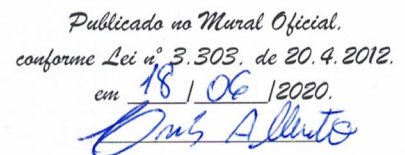 Publicado no Mural Oficial,
conforme Lei nº 3.303, de 20.4.2012.
em 18 / 06 /2020.